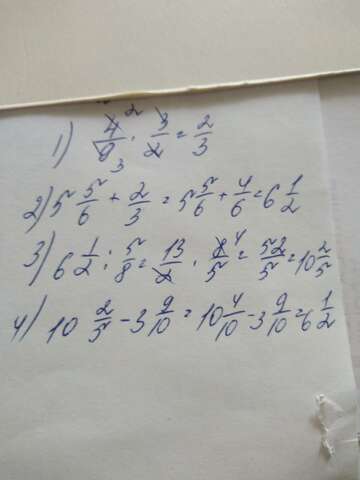 1) 4/9 · 3/2 = 2/3
2) 5 5/6 + 2/3 = 5 5/6 + 4/6 = 6 1/2
3) 6 1/2 : 5/8 = 13/2 · 8/5 = 52/5 = 10 2/5
4) 10 2/5 - 3 9/10 = 10 4/10 - 3 9/10 = 6 1/2